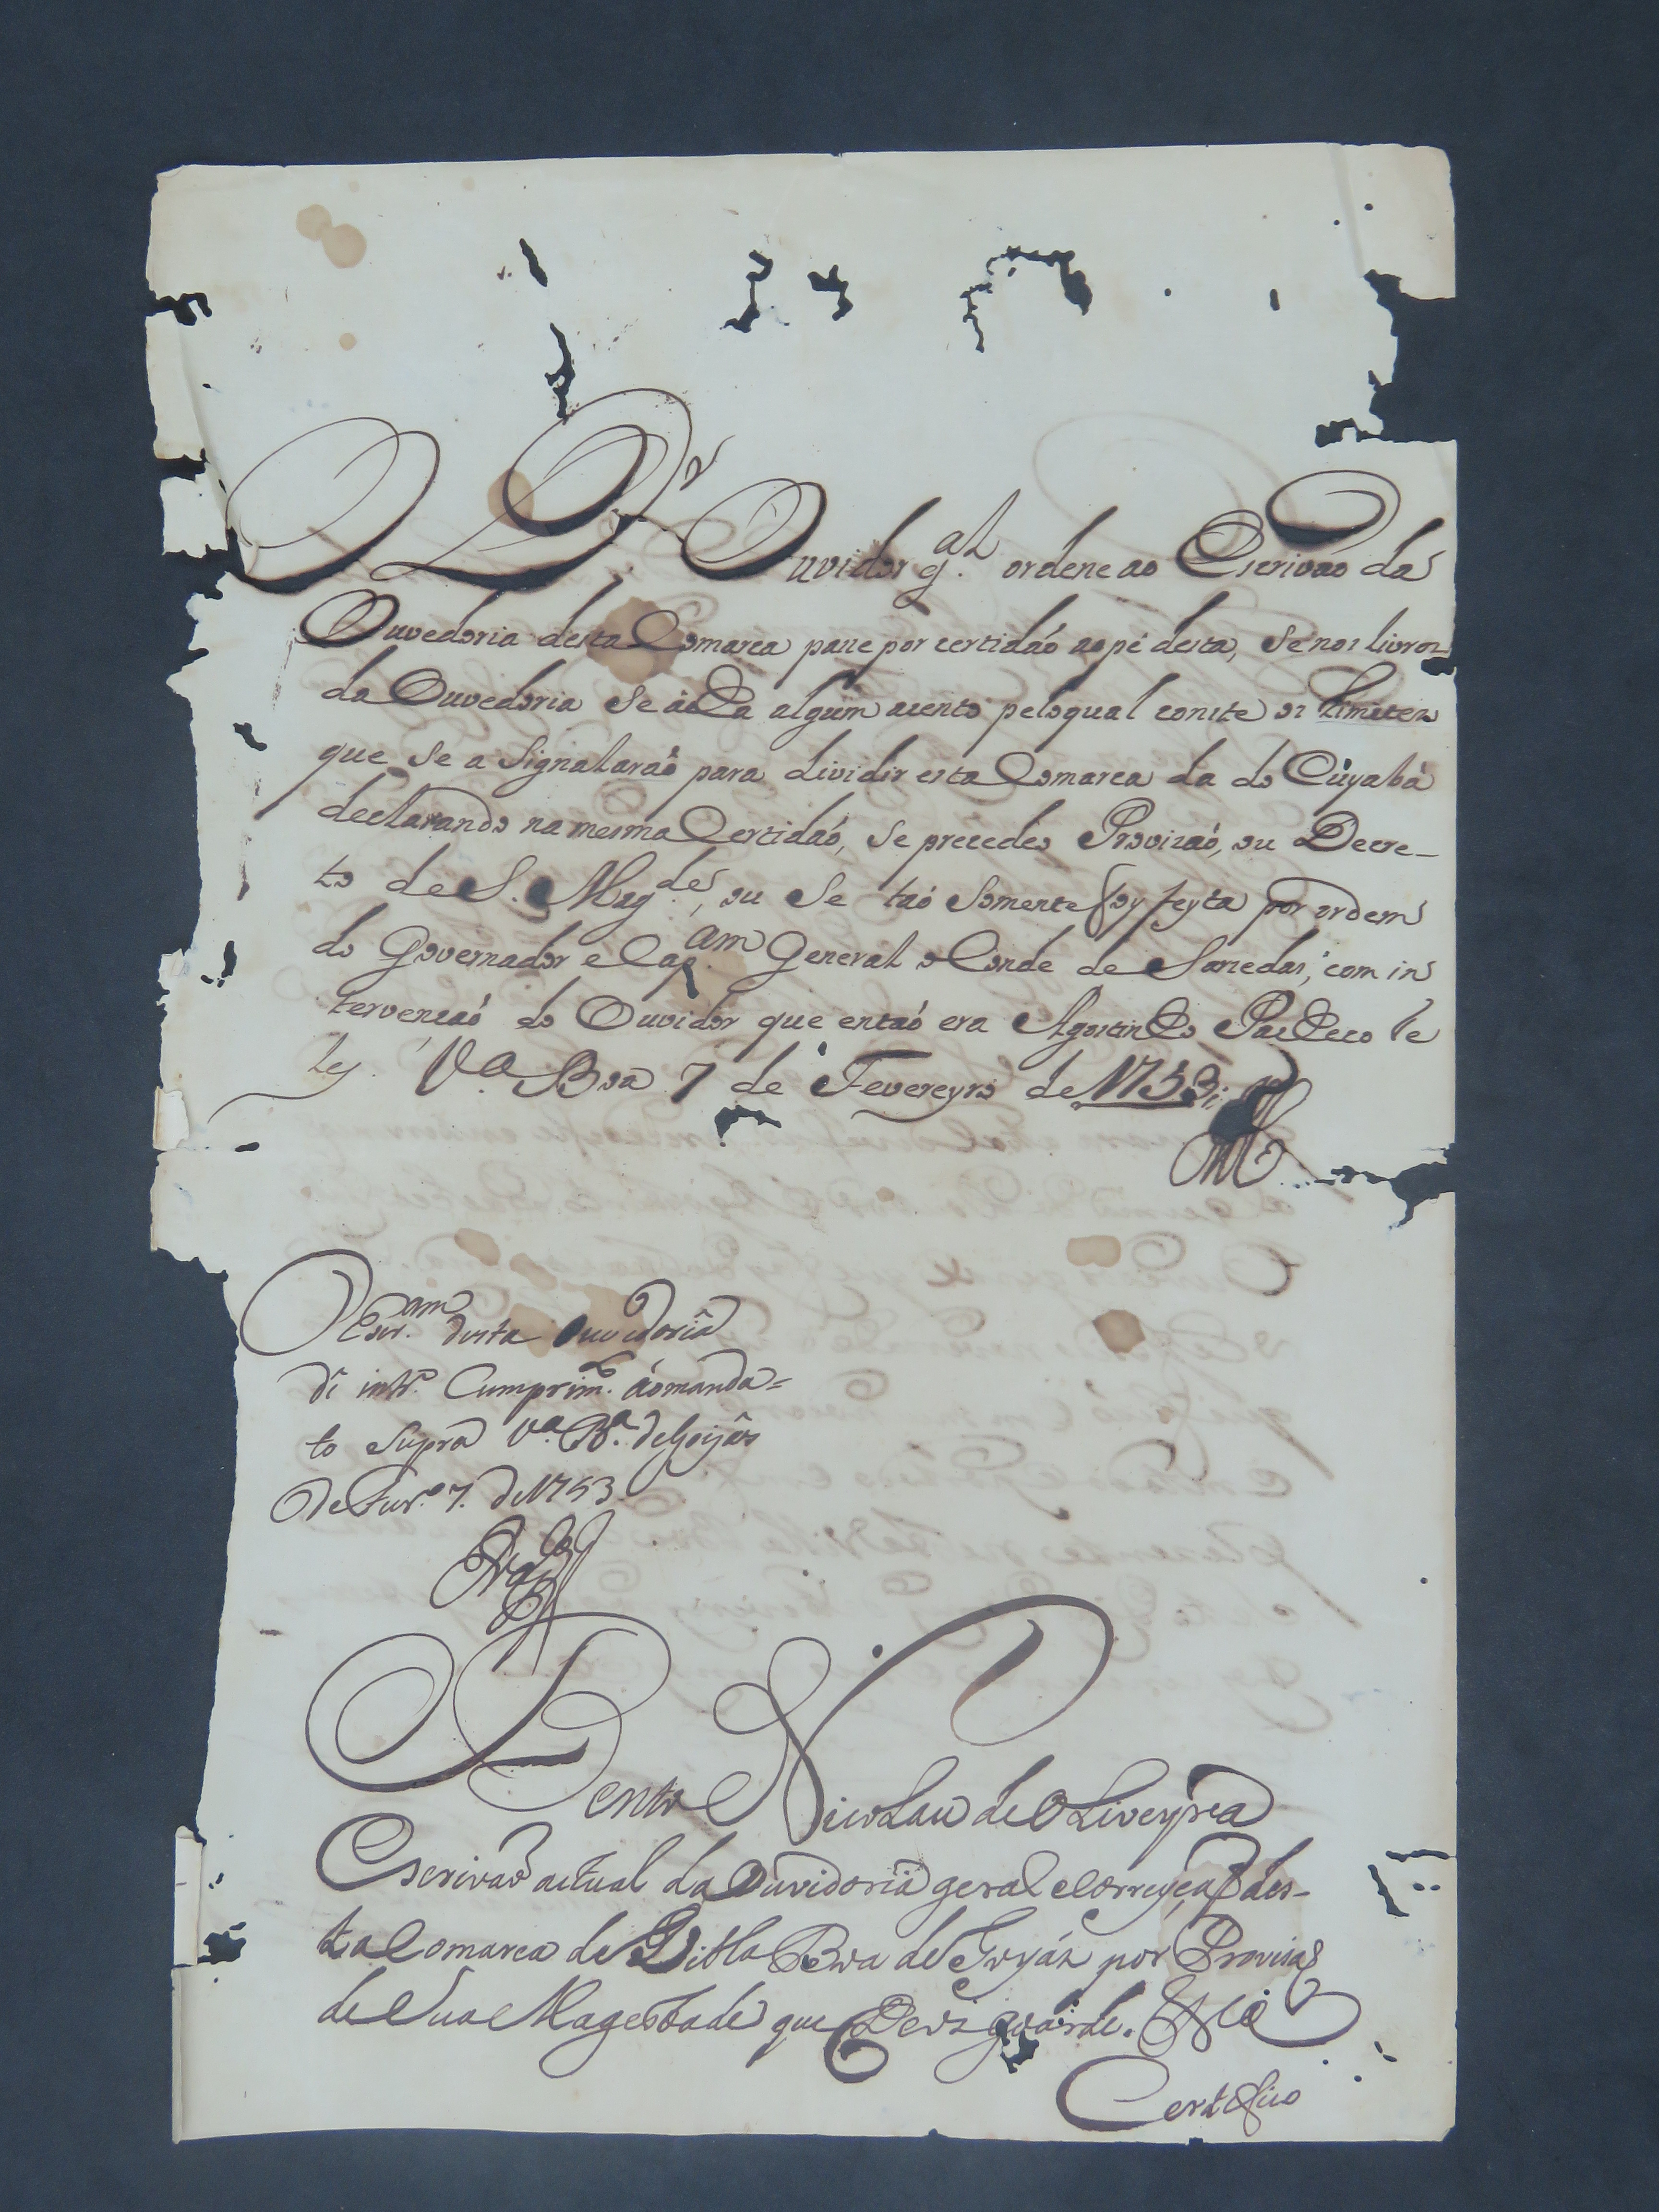 O D.r Ouvidor g.al ordene ao Escrivaõ da
Ouvedoria desta Comarca passe por certidaõ ao pé desta, se nos livros
da Ouvedoria se acha algum acento pelo qual conste os Limites
que se a Signalaraõ para dividir esta Comarca da do Cuyabá
declarando na mesma Certidaõ, se precedeo Provizaõ, ou Decre-
to de S. Mag.de, ou se taõ somente foy feyta por ordem
do Governador e Cap.am General o Conde de Sarzedas, com in
tervençaõ do Ouvidor que entaõ era Agostinho Pacheco Te
les. V.a Boa 7 de Fevereyro de 1753
O Escr.am desta Ouvedoria
dê intr.o Cumprim.to ao manda=
to supra V.a B.a de Goyâs
de Fevr.o 7. de 1753
Bento Nicolau de Oliveyra
Escrivaõ actual da Ouvidoria geral e Correyçaõ des-
ta Comarca de Villa Boa de Goyáz por Provizaõ
de Sua Magestade que Deos guarde. &c.a
Certefico